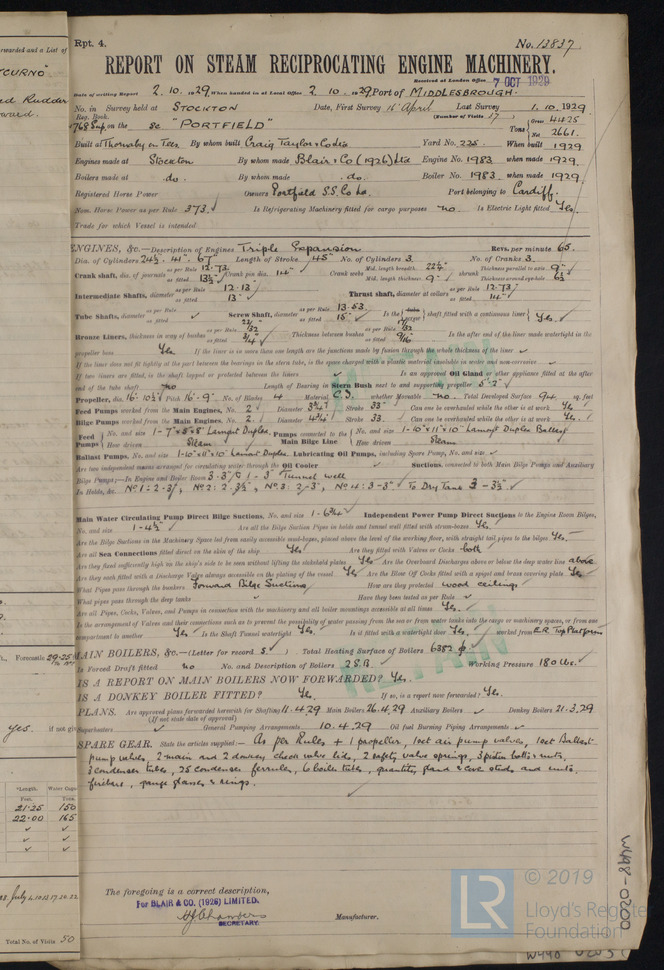 Rpt. 4. No. 13837.
REPORT ON STEAM RECIPROCATING ENGINE MACHINERY.
Received at London Office 7 OCT 1929
Date of writing Report 2. 10. 1929 When handed in at Local Office 2. 10. 1929 Port of MIDDLESBROUGH.
No. in Survey held at STOCKTON Date, First Survey 16 April Last Survey 1. 10. 1929
Reg. Book. (Number of Visits 17)
on the Sc "PORTFIELD" Tons Gross 4425
Net 2661.
Built at Thornaby on Tees By whom built Craig Taylor & Co Ltd Yard No. 225. When built 1929.
Engines made at Stockton By whom made Blair & Co (1926) Ltd Engine No. 1983 when made 1929.
Boilers made at do. By whom made do. Boiler No. 1983 when made 1929.
Registered Horse Power Owners Portfield S.S. Co Ld. Port belonging to Cardiff.
Nom. Horse Power as per Rule 373 Is Refrigerating Machinery fitted for cargo purposes no. Is Electric Light fitted Yes.
Trade for which Vessel is intended
ENGINES, &c.—Description of Engines Triple Expansion Revs. per minute 65.
Dia. of Cylinders 24½. 41. 67 Length of Stroke 45 No. of Cylinders 3. No. of Cranks 3.
Crank shaft, dia. of journals as per Rule 12.73 as fitted 13½ Crank pin dia. 14 Crank webs Mid. length breadth 22¼ Mid. length thickness 9 shrunk Thickness parallel to axis 9 Thickness around eyehole 6½
Intermediate Shafts, diameter as per Rule 12.13 as fitted 13 Thrust shaft, diameter at collars as per Rule 12.73 as fitted 14
Tube Shafts, diameter as per Rule as fitted Screw Shaft, diameter as per Rule 13.53 as fitted 15 Is the shaft fitted with a continuous liner Yes.
Bronze Liners, thickness in way of bushes as per Rule as fitted 3/4 Thickness between bushes as per Rule as fitted 9/16 Is the after end of the liner made watertight in the
propeller boss Yes. If the liner is in more than one length are the junctions made by fusion through the whole thickness of the liner
If the liner does not fit tightly at the part between the bearings in the stern tube, is the space charged with a plastic material insoluble in water and non-corrosive
If two liners are fitted, is the shaft lapped or protected between the liners Is an approved Oil Gland or other appliance fitted at the after
end of the tube shaft no Length of Bearing in Stern Bush next to and supporting propeller 5'-2"
Propeller, dia. 16'-10½ Pitch 16'-9" No. of Blades 4 Material C.I. whether Moveable no. Total Developed Surface 94 sq. feet
Feed Pumps worked from the Main Engines, No. 2 Diameter 3¾ Stroke 33 Can one be overhauled while the other is at work Yes.
Bilge Pumps worked from the Main Engines, No. 2 Diameter 4¼ Stroke 33 Can one be overhauled while the other is at work Yes.
Feed Pumps No. and size 1-7"x5"x8" Lamont Duplex. How driven Steam Pumps connected to the Main Bilge Line No. and size 1-10"x11"x10" Lamont Duplex Ballast How driven Steam
Ballast Pumps, No. and size 1-10"x11"x10" Lamont Duplex. Lubricating Oil Pumps, including Spare Pump, No. and size
Are two independent means arranged for circulating water through the Oil Cooler Suctions, connected to both Main Bilge Pumps and Auxiliary
Bilge Pumps;—In Engine and Boiler Room 3-3½ 1-3" Tunnel well
In Holds, &c. No 1: 2-3½, No 2: 2-3½", No. 3: 2-3", No. 4: 3-3" To Dry Tank 3-3½.
Main Water Circulating Pump Direct Bilge Suctions, No. and size 1-6¾ Independent Power Pump Direct Suctions to the Engine Room Bilges,
No. and size 1-4½ Are all the Bilge Suction Pipes in holds and tunnel well fitted with strum-boxes Yes.
Are the Bilge Suctions in the Machinery Space led from easily accessible mud-boxes, placed above the level of the working floor, with straight tail pipes to the bilges Yes.
Are all Sea Connections fitted direct on the skin of the ship Yes. Are they fitted with Valves or Cocks both
Are they fixed sufficiently high on the ship's side to be seen without lifting the stokehold plates Yes Are the Overboard Discharges above or below the deep water line above
Are they each fitted with a Discharge Valve always accessible on the plating of the vessel Yes Are the Blow Off Cocks fitted with a spigot and brass covering plate Yes.
What Pipes pass through the bunkers Forward Bilge Suctions How are they protected wood ceiling.
What pipes pass through the deep tanks Have they been tested as per Rule
Are all Pipes, Cocks, Valves, and Pumps in connection with the machinery and all boiler mountings accessible at all times Yes.
Is the arrangement of Valves and their connections such as to prevent the possibility of water passing from the sea or from water tanks into the cargo or machinery spaces, or from one
compartment to another Yes Is the Shaft Tunnel watertight Yes. Is it fitted with a watertight door Yes, worked from E.R. Top Platform
MAIN BOILERS, &c.—(Letter for record S) Total Heating Surface of Boilers 6382
Is Forced Draft fitted no No. and Description of Boilers 2 S.B. Working Pressure 180 lbs.
IS A REPORT ON MAIN BOILERS NOW FORWARDED? Yes.
IS A DONKEY BOILER FITTED? Yes. If so, is a report now forwarded? Yes.
PLANS. Are approved plans forwarded herewith for Shafting 11.4.29 Main Boilers 26.4.29 Auxiliary Boilers Donkey Boilers 21.3.29
(If not state date of approval)
Superheaters General Pumping Arrangements 10.4.29 Oil fuel Burning Piping Arrangements
SPARE GEAR. State the articles supplied:— As per Rules + 1 propeller, 1 set air pump valves, 1 set Ballast
pump valves, 2 main and 2 donkey check valve lids, 2 safety valve springs, 3 piston bolts & nuts,
3 condenser tubes, 25 condenser ferrules, 6 boiler tubes, quantity gland & cove studs and nuts,
firebars, gauge glasses & rings.
RETAIN
RETAIN
The foregoing is a correct description,
For BLAIR & CO. (1926) LIMITED.
SECRETARY.
Manufacturer.
© 2019
LR
Lloyd's Register
Foundation
W448-0200
Forecastle 29.25
Length. Water Cap
Feet. Tons.
21.25 150
22.00 165
Total No. of Visits 50